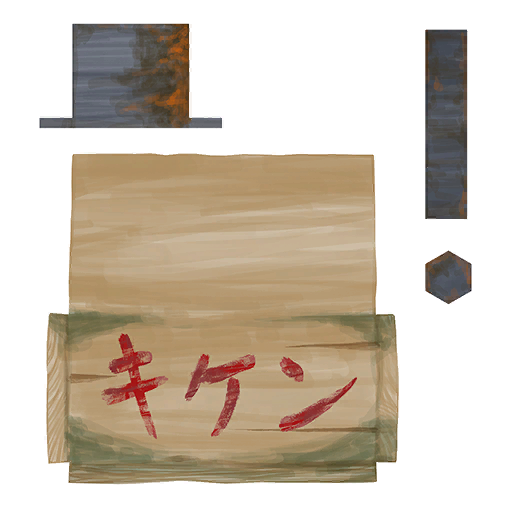 キケン